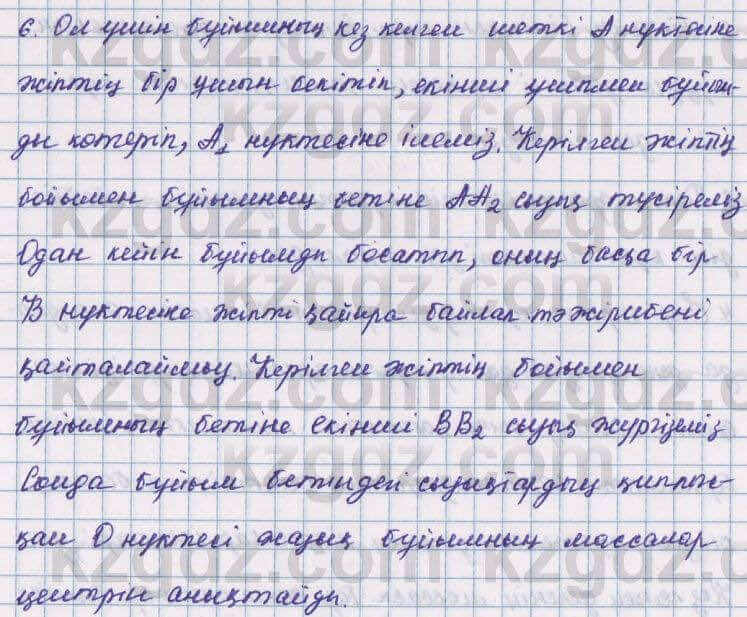 6. Ол үшін бұйымның кез келген шеткі А нүктесіне
жіптің бір ұшын бекітіп, екінші ұшымен бұйым-
ды көтеріп, А₁ нүктесіне ілеміз. Керілген жіптің
бойымен бұйымның бетіне АА₂ сызық түсіреміз
Одан кейін бұйымды босатып, оның басқа бір
В нүктесіне жіпті қайыра байлап тәжірибені
қайталаймыз. Керілген жіптің бойымен
бұйымның бетіне екінші ВВ₂ сызық жүргіземіз
Сонда бұйым бетіндегі сызықтардың қиылыс-
қан О нүктесі жазық бұйымның массалар
центрін анықтайды.
kzgdz.com